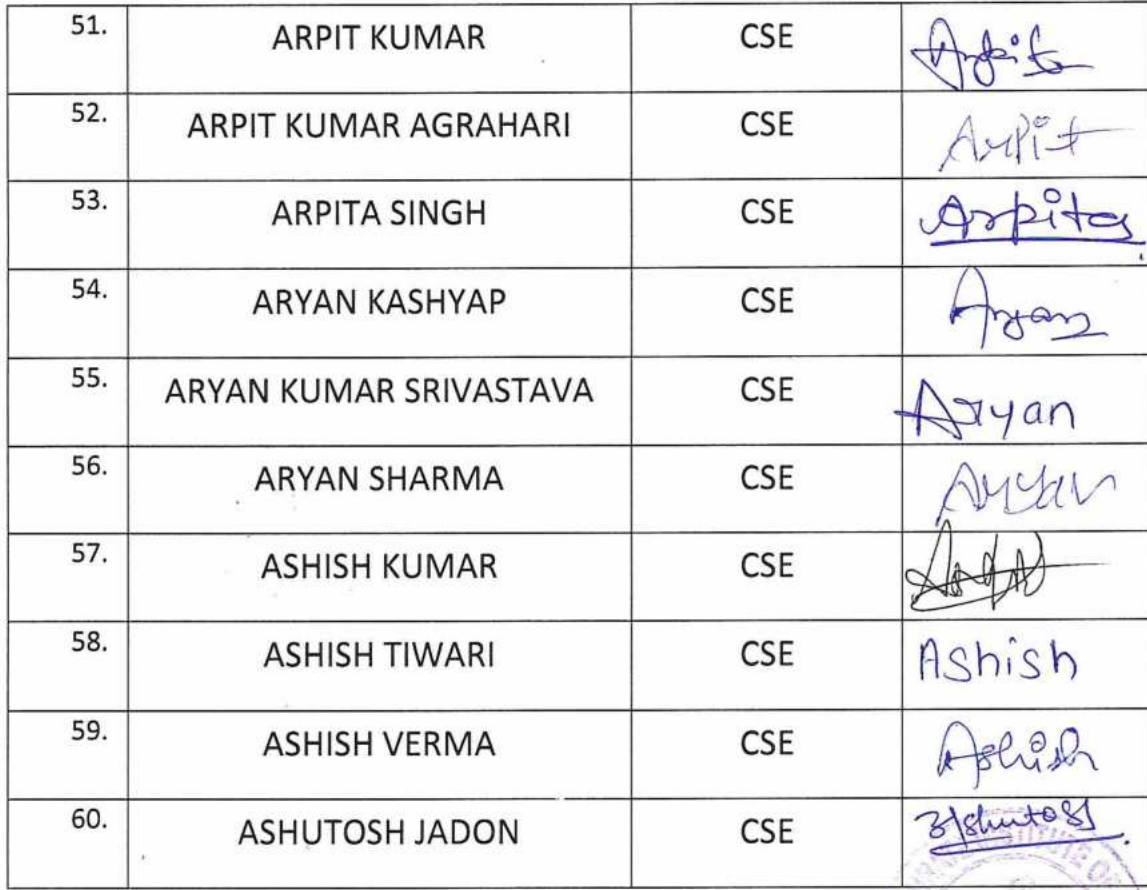 51. ARPIT KUMAR CSE Arpit
52. ARPIT KUMAR AGRAHARI CSE Arpit
53. ARPITA SINGH CSE Arpita
54. ARYAN KASHYAP CSE Aryan
55. ARYAN KUMAR SRIVASTAVA CSE Aryan
56. ARYAN SHARMA CSE Aryan
57. ASHISH KUMAR CSE
58. ASHISH TIWARI CSE Ashish
59. ASHISH VERMA CSE Ashish
60. ASHUTOSH JADON CSE
INSTITUTE OF